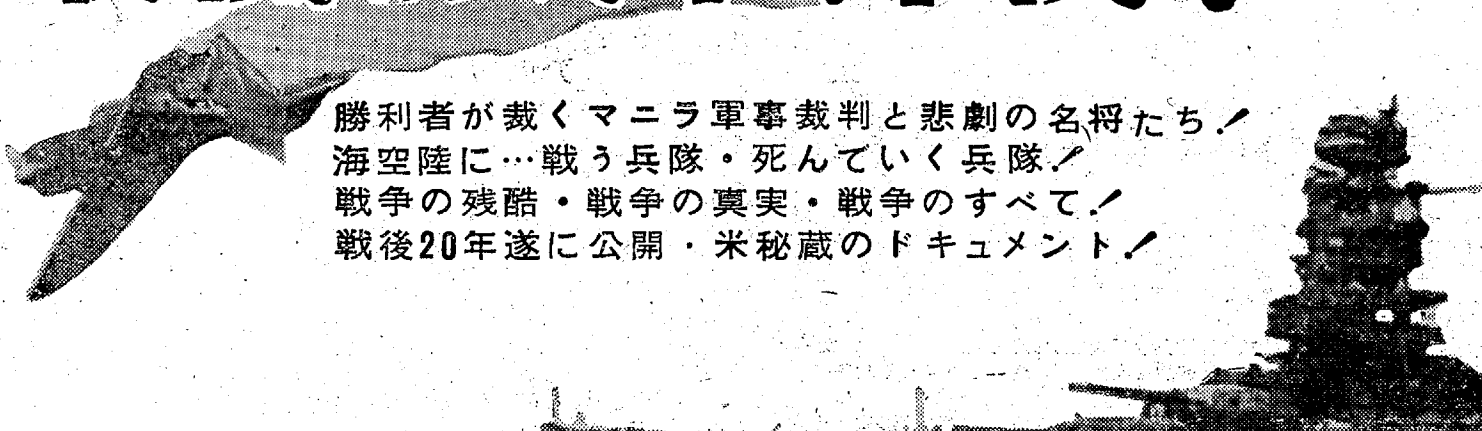 勝利者が裁くマニラ軍事裁判と悲劇の名将たち！
海空陸に…戦う兵隊・死んでいく兵隊！
戦争の残酷・戦争の真実・戦争のすべて！
戦後20年遂に公開・米秘蔵のドキュメント！